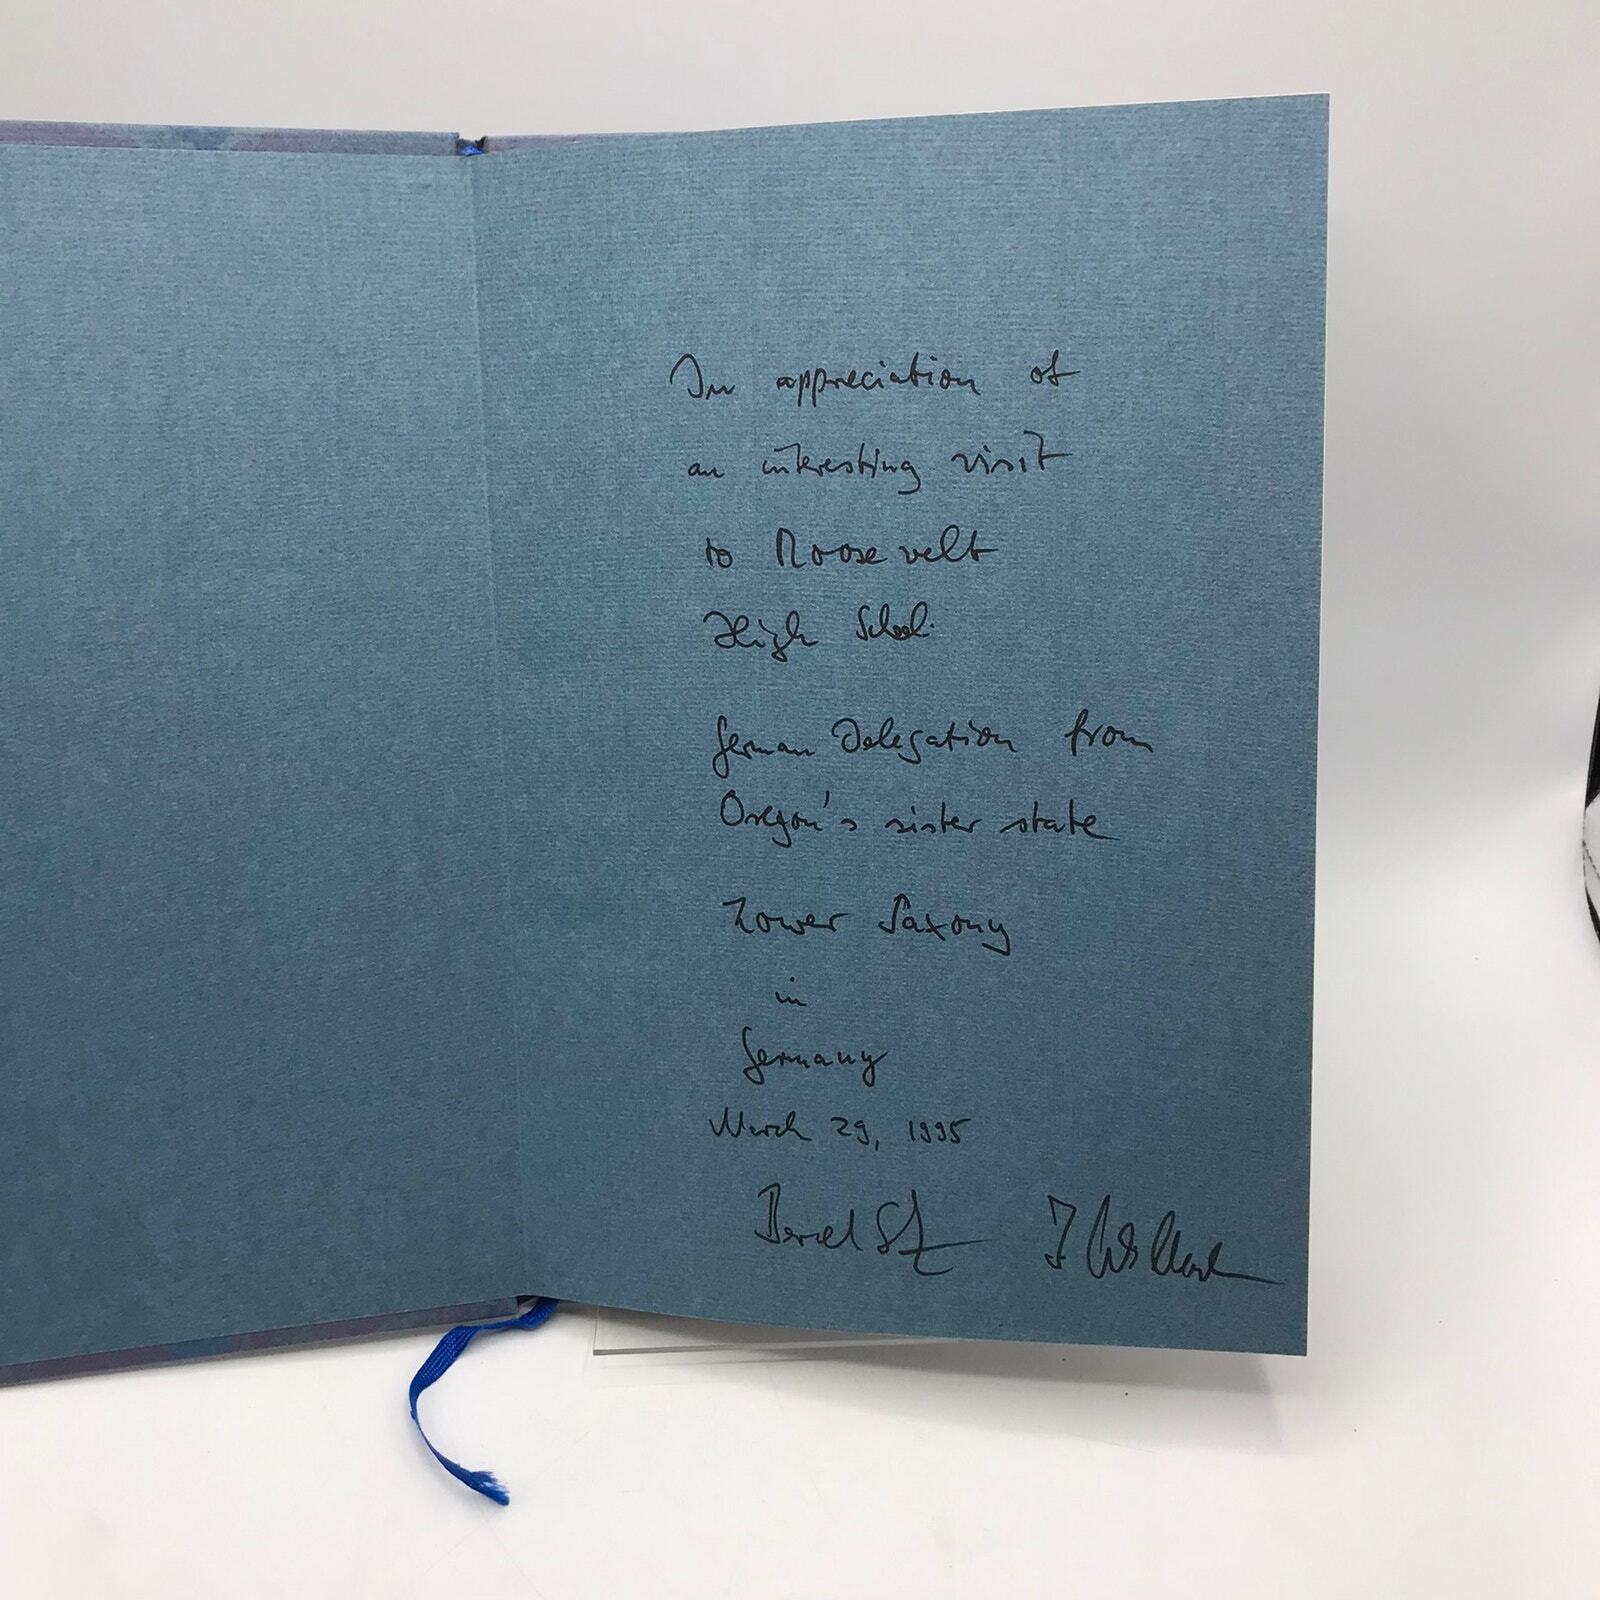 In appreciation of
an interesting visit
to Roosevelt
High School.
German Delegation from
Oregon's sister state
Lower Saxony
in
Germany
March 29, 1995
Bernd